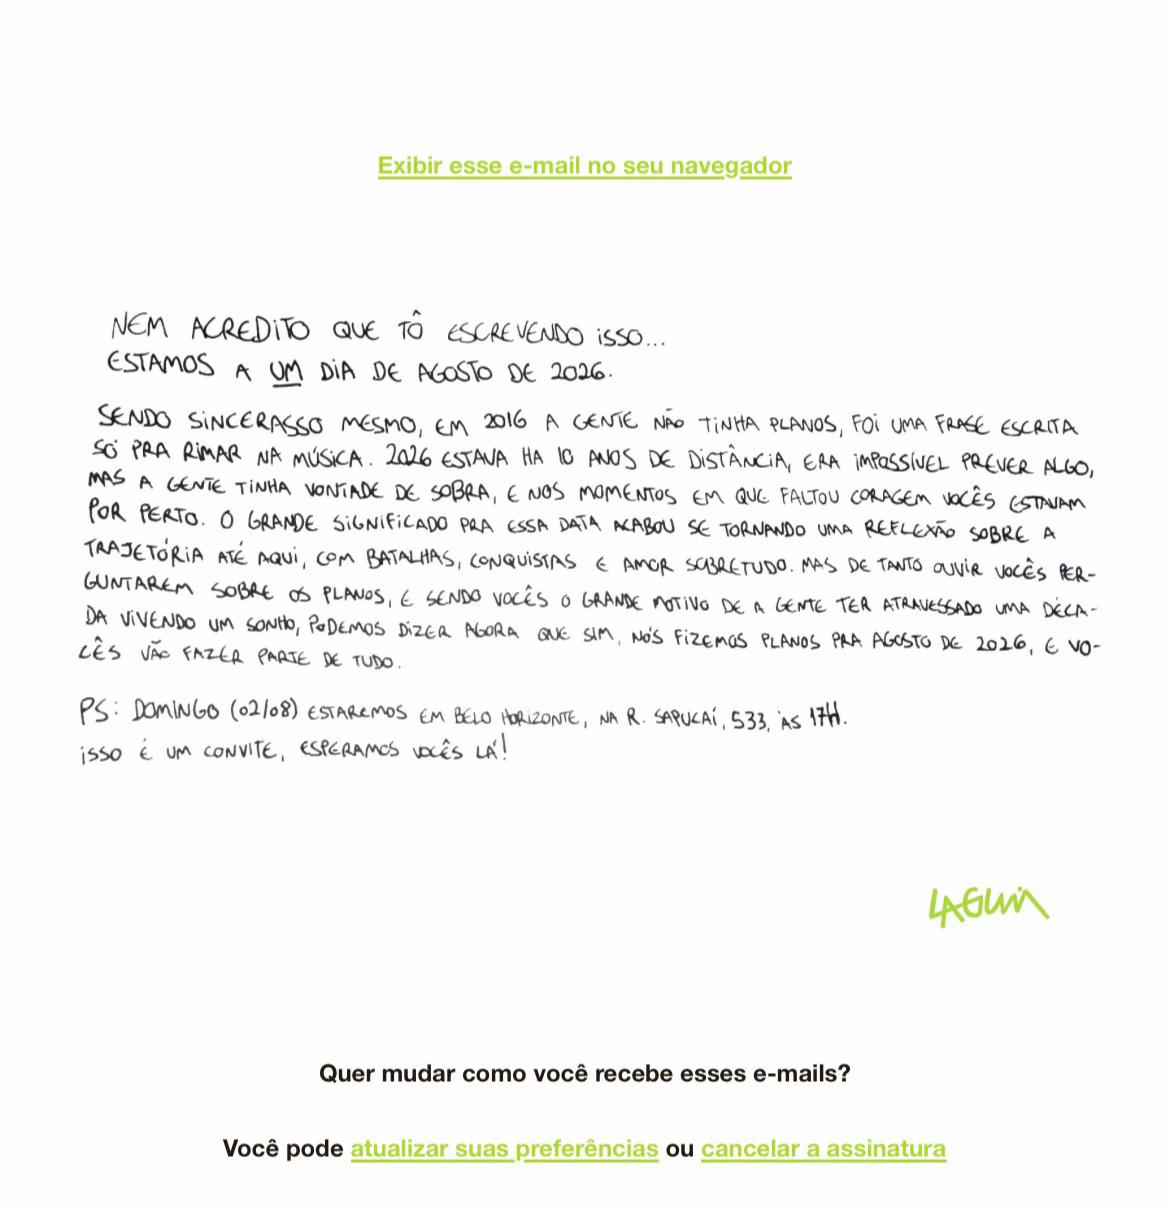 Exibir esse e-mail no seu navegador
NEM ACREDITO QUE TÔ ESCREVENDO ISSO...
ESTAMOS A UM DIA DE AGOSTO DE 2026.
SENDO SINCERASSO MESMO, EM 2016 A GENTE NÃO TINHA PLANOS, FOI UMA FRASE ESCRITA
SÓ PRA RIMAR NA MÚSICA. 2026 ESTAVA HA 10 ANOS DE DISTÂNCIA, ERA IMPOSSÍVEL PREVER ALGO,
MAS A GENTE TINHA VONTADE DE SOBRA, E NOS MOMENTOS EM QUE FALTOU CORAGEM VOCÊS ESTAVAM
POR PERTO. O GRANDE SIGNIFICADO PRA ESSA DATA ACABOU SE TORNANDO UMA REFLEXÃO SOBRE A
TRAJETÓRIA ATÉ AQUI, COM BATALHAS, CONQUISTAS E AMOR SOBRETUDO. MAS DE TANTO OUVIR VOCÊS PER-
GUNTAREM SOBRE OS PLANOS, E SENDO VOCÊS O GRANDE MOTIVO DE A GENTE TER ATRAVESSADO UMA DÉCA-
DA VIVENDO UM SONHO, PODEMOS DIZER AGORA QUE SIM, NÓS FIZEMOS PLANOS PRA AGOSTO DE 2026, E VO-
CÊS VÃO FAZER PARTE DE TUDO.
PS: DOMINGO (02/08) ESTAREMOS EM BELO HORIZONTE, NA R. SAPUCAÍ, 533, ÀS 17H.
ISSO É UM CONVITE, ESPERAMOS VOCÊS LÁ!
LAGUM
Quer mudar como você recebe esses e-mails?
Você pode atualizar suas preferências ou cancelar a assinatura